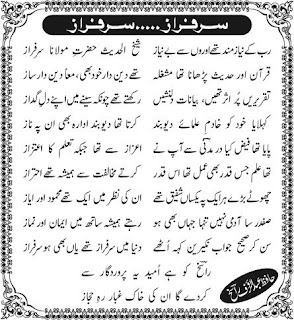 سرفراز.....سرفراز
رب کے نیاز مند تھے اوروں سے بے نیاز
شیخ الحدیث حضرتِ مولانا سرفراز
قرآن اور حدیث پڑھانا تھا مشغلہ
تھے دین دار خود بھی، معاً دین دار ساز
تقریریں پُر اثر تھیں، بیانات دلنشیں
رکھتے تھے چونکہ سینے میں اپنے دلِ گداز
کہلایا خود کو خادمِ علمائے دیوبند
کرتا تھا دیوبند ادارہ بھی ان پہ ناز
پایا تھا فیض کیا در مدنی سے آپ نے
اعزاز سے تھا جبکہ تعلم کا اعتزاز
تھا علم جس قدر بھی عمل تھا اس قدر
کرتے مخالفت سے ہمیشہ تھے احتراز
چھوٹے بڑے ہر ایک پہ یکساں شفیق تھے
ان کی نظر میں ایک تھے محمود اور ایاز
صفدر سا آدمی نہیں تنہا جہاں بھی ہو
رہتے ہمیشہ ساتھ میں ایمان اور نماز
سن کر صحیح جواب نکیرین کہہ اُٹھے
دنیا میں سرفراز تھے یاں بھی ہو سرفراز
راسخؔ کو ہے اُمید یہ پروردگار سے
کر دے گا ان کی خاک غبارِ رہِ حجاز